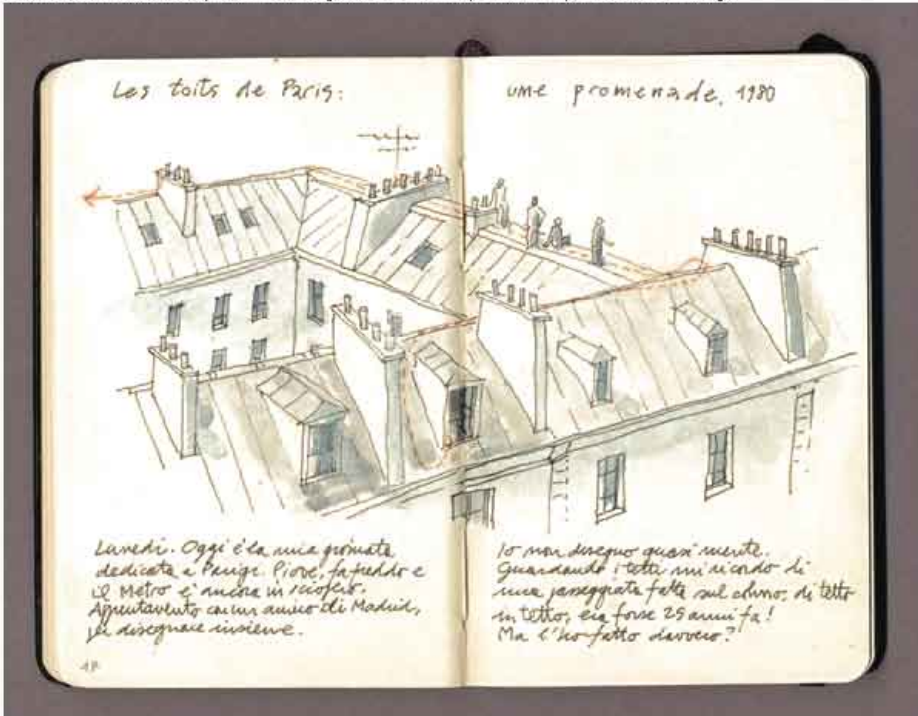 Les toits de Paris:
Lunedì. Oggi è la mia giornata
dedicata a Parigi. Piove, fa freddo e
il Metro è ancora in sciopero.
Appuntamento con un amico di Madrid,
per disegnare insieme.
une promenade, 1980
Io non disegno quasi niente.
Guardando i tetti mi ricordo di
una passeggiata fatta sul colmo, di tetto
in tetto, era forse 25 anni fa!
Ma l'ho fatto davvero?